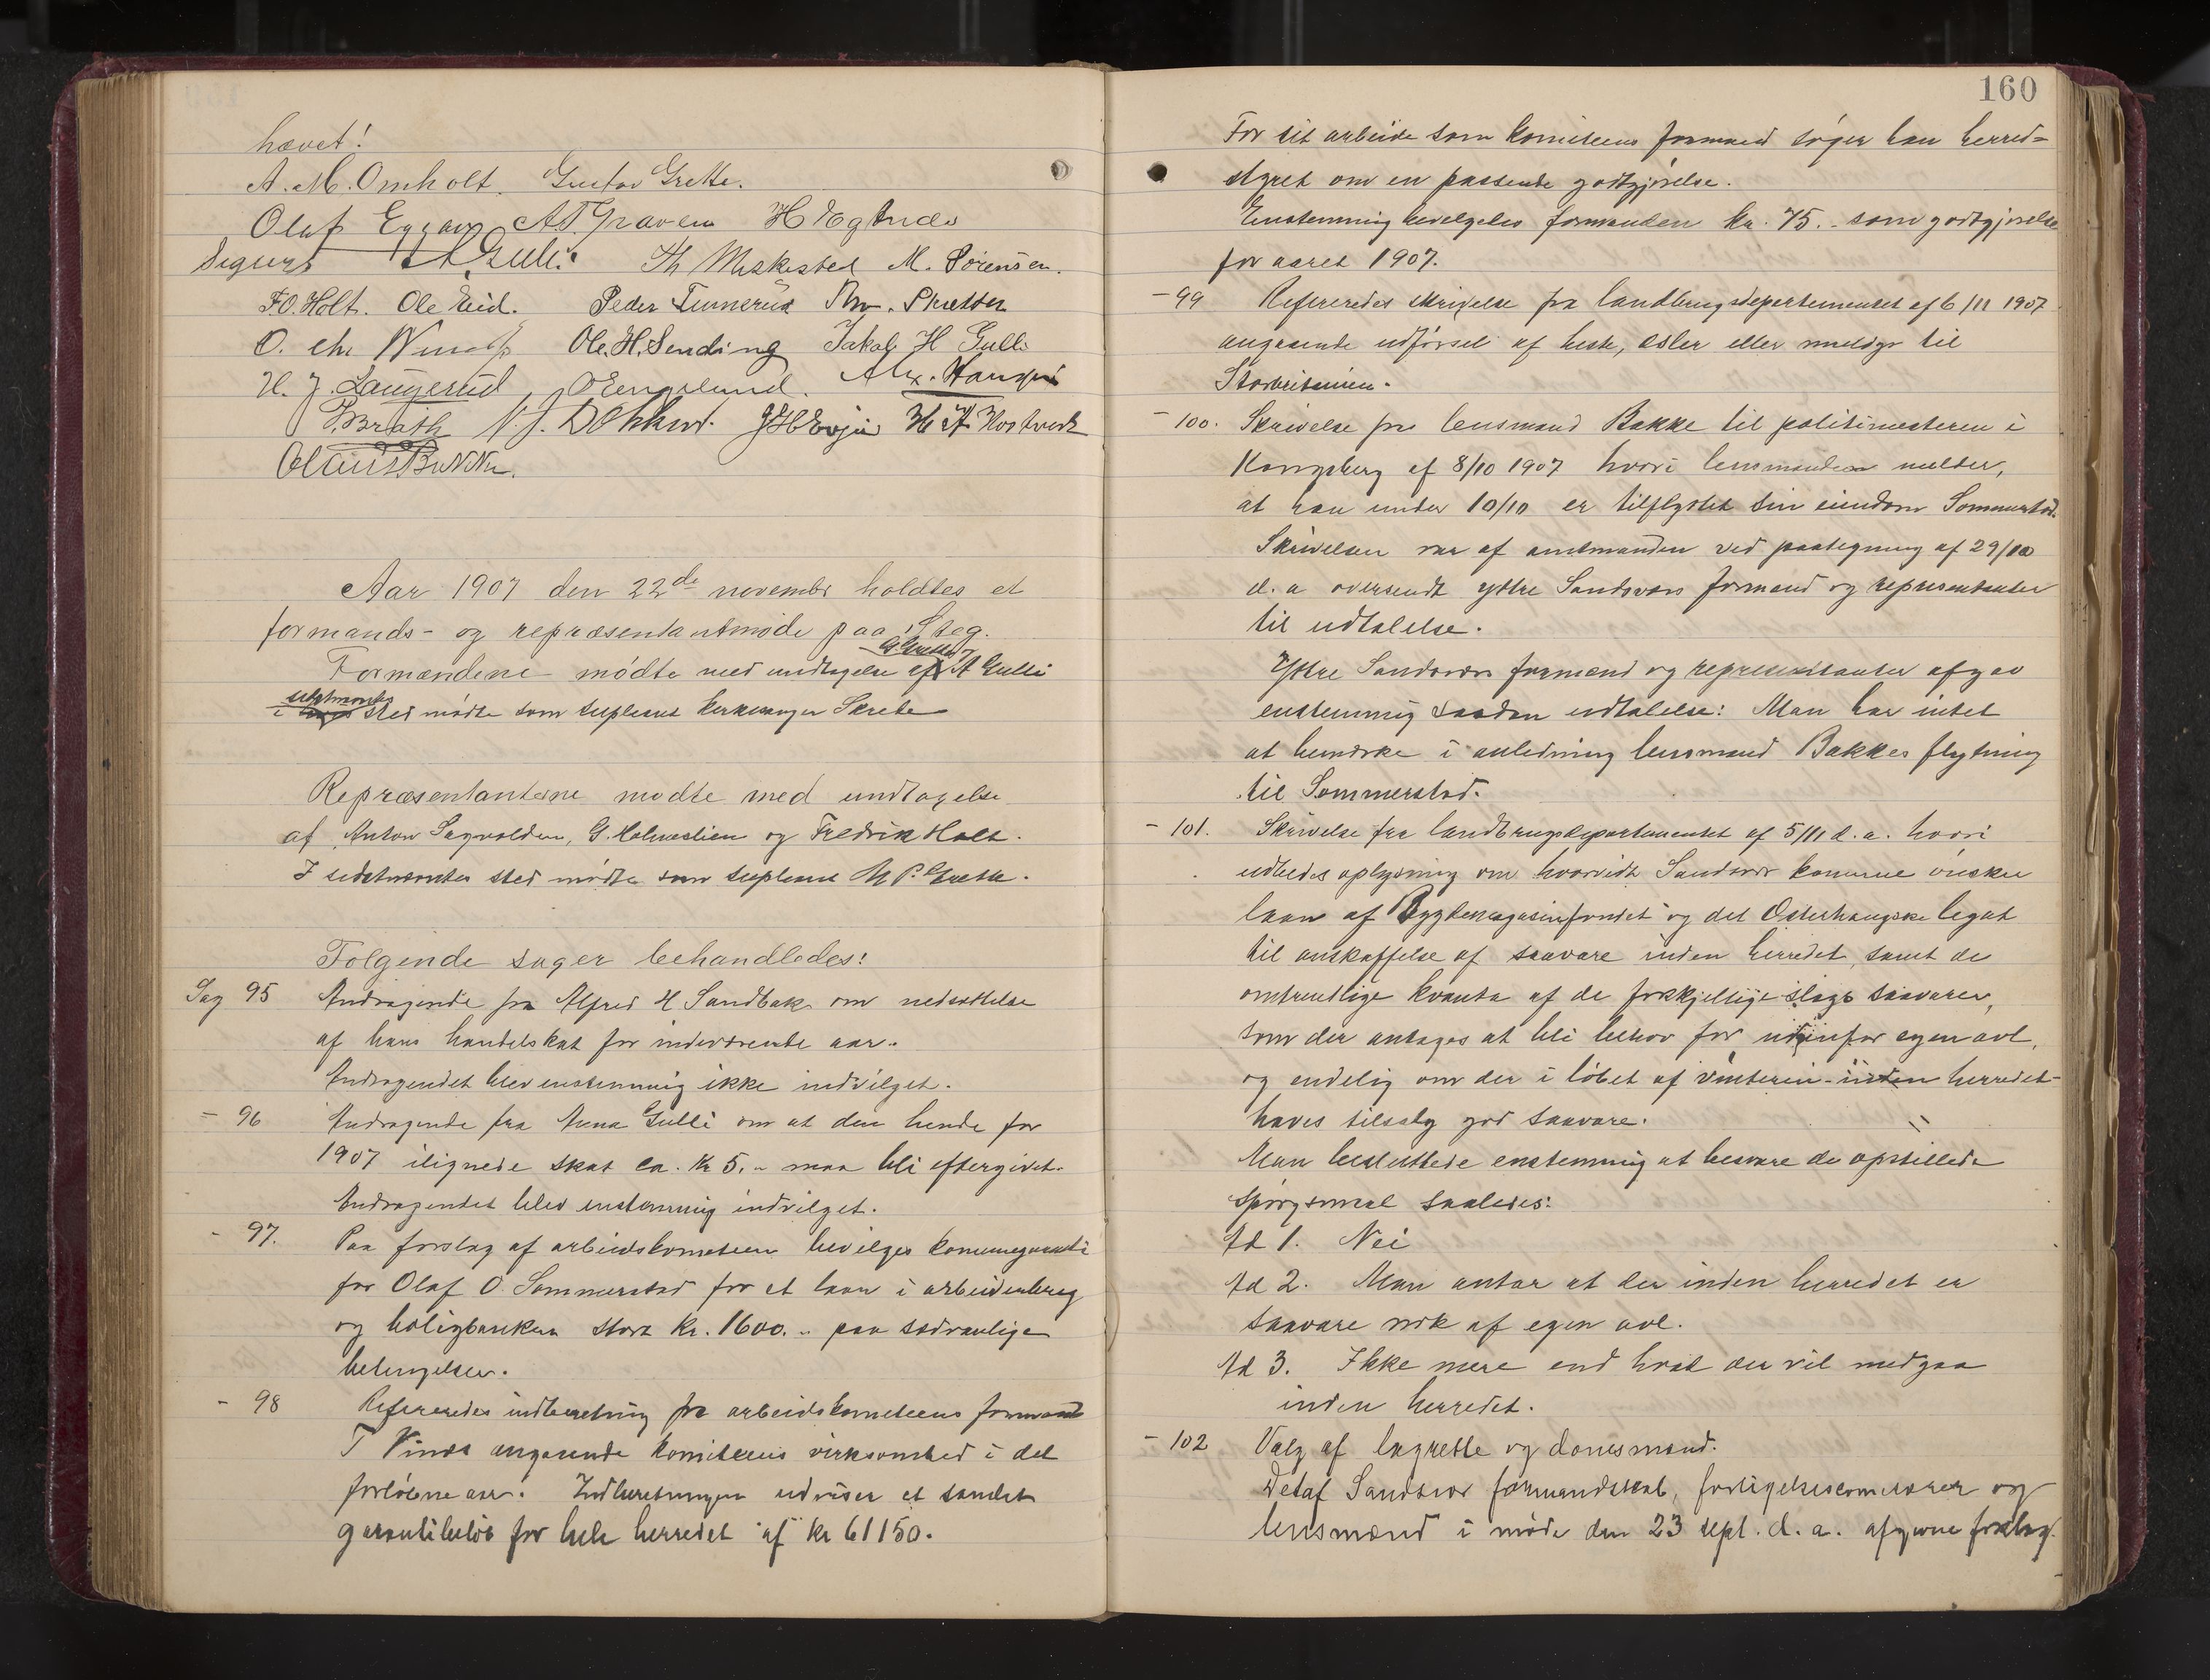 hævet!
A. M. Omholt. Gustav Grette.
Olaf Eggar A.T. Graven H Eglands
Sigurs A. Gulli Th Miskestad M. Sørensen.
F.O. Holt. Ole Eid. Peder Tinnerud
O. Chr Ole. H. Sending Jakob H Gulli
H. J. Laugerud O Engelund. Alex. Hansen
P. Bråth N. J. Dokker. H
Olaus Bakke.
Aar 1907 den 22de novembr holdtes et
formands- og repræsentantmøde paa Steg.
G. Grette
Formændene mødte med undtagelse af A Gulli
sidstnævntes
i sted mødte som supleant kirkesanger Skrede
Repræsentanterne mødte med undtagelse
af Anton Sagvolden, G. Holmeslien og Fredrik Holt.
I sidstnævntes sted mødte som supleant P. Grette.
Følgende sager behandledes:
Sag 95 Andragende fra Alfred H Sandbak om nedsættelse
af hans handelskat for indeværende aar.
Andragendet blev enstemmig ikke indvilget.
- 96 Andragende fra Anna Gulli om at den hende for
1907 ilignede skat ca. kr 5.- maa bli eftergivet.
Andragendet blev enstemmig indvilget.
- 97. Paa forslag af arbeidskomiteen bevilges kommunegaranti
for Olaf O. Sommerstad for et laan i arbeiderbrug
og boligbanken stort kr. 1600.- paa sædvanlige
betingelser.
- 98 Refereredes indberetning fra arbeidskomiteens formand
T Vinæs angaaende komiteens virksomhed i det
forløbne aar. Indberetningen udviser et samlet
garantibeløb for hele herredet af kr 61150.
160
For sit arbeide som komiteens formand søger han herred=
styret om en passende godtgjørelse.
Enstemmig bevilgedes formanden kr. 75.- som godtgjørelse
for aaret 1907.
- 99 Refereredes skrivelse fra landbrugsdepartementet af 6/11 1907
angaaende udførsel af heste, æsler eller muldyr til
Storbritanien.
- 100. Skrivelse fra lensmand Bakke til politimesteren i
Kongsberg af 8/10 1907 hvori lensmanden melder,
at han under 10/10 er tilflyttet sin eiendom Sommerstad.
Skrivelsen var af amtmanden ved paategning af 29/10
d. a oversendt ytre Sandsvær formænd og repræsentanter
til udtalelse.
Ytre Sandsvær formænd og repræsentanter afgav
enstemmig saadan udtalelse: Man har intet
at bemærke i anledning lensmand Bakkes flytning
til Sommerstad.
- 101. Skrivelse fra landbrugsdepartementet af 5/11 d. a. hvori
udbedes oplysning om hvorvidt Sandsvær komune ønsker
laan af Bygdemagasinfondet og det Østerhaugske legat
til anskaffelse af saavare inden herredet, samt de
omtrentlige kvanta af de forskjellige slags saavarer,
som der antages at bli behov for udenfor egen avl,
og endelig om der i løbet af vinteren inden herredet
haves tilsalg god saavare.
Man besluttede enstemmig at besvare de opstillede
spørgsmaal saaledes:
Ad 1. Nei
Ad 2. Man antar at der inden herredet er
saavare nok af egen avl.
Ad 3. Ikke mere end hvad der vil medgaa
inden herredet.
- 102 Valg af lagrette og domsmænd.
Det af Sandsvær formandskab, forligelseskomisærer og
lensmænd i møde den 23 sept. d. a. afgivne forslag.